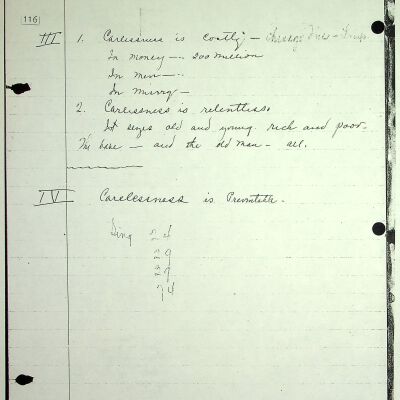 116
III 1. Carlessness is costly —
In money — .. 200 million
In men — ..
In
2. Carlessness is relentless.
It seizes old and young rich and poor.
The babe — and the old man - all.
IV Carelessness is Preventable.
Sing
74